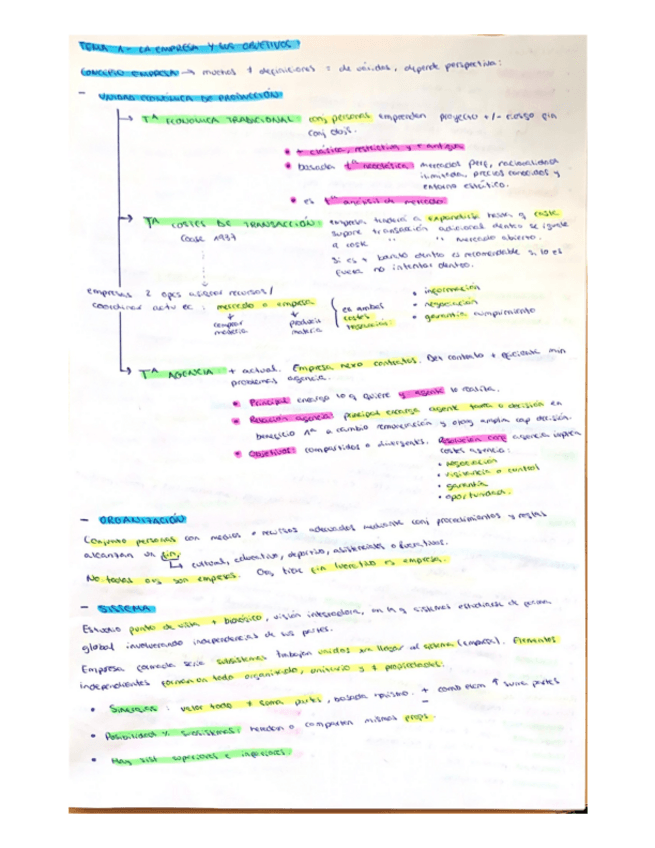 TEMA 1 - LA EMPRESA Y SUS OBJETIVOS
CONCEPTO EMPRESA → muchas ≠ definiciones = de válidas, depende perspectiva:
- UNIDAD ECONÓMICA DE PRODUCCIÓN
→ Tª ECONÓMICA TRADICIONAL conj personas emprenden proyecto +/- riesgo fin
conj objs.
• + clásica, restrictiva y + antigua
• basada tª neoclásica: mercados perf, racionalidad
ilimitada, precios conocidos y
entorno estático.
• es tª análisis de mercado
→ Tª COSTES DE TRANSACCIÓN: empresa tenderá a expandirse hasta q coste
Coase 1937 supone transacción adicional dentro se iguale
a coste " " " mercado abierto.
Si es + barato dentro es recomendable si lo es
fuera no intentar dentro.
empresas 2 opcs asignar recursos/
coordinar actv ec: mercado o empresa
comprar materia
producir materia
en ambos
costes
• información
• negociación
• garantía cumplimiento
→ Tª AGENCIA + actual. Empresa nexo contratos. Det contrato + eficiente min
problemas agencia.
• Principal encarga lo q quiere y agente lo realiza.
• Relación agencia: principal encarga agente tarea o decisión en
beneficio 1º a cambio remuneración y otorg amplia cap decisión.
• Objetivos: compartidos o divergentes. Resolución conf agencia implica
costes agencia:
• negociación
• vigilancia o control
• garantía
• oportunidad.
- ORGANIZACIÓN
Conjunto personas con medios o recursos adecuados mediante conj procedimientos y reglas
alcanzan un fin.
↳ cultural, educativo, deportivo, asistenciales o lucrativos.
No todas orgs son empresas. Org tiene fin lucrativo es empresa.
- SISTEMA
Estudio punto de vista + biológico, visión integradora, en la q sistemas estudiarse de forma
global involucrando independencias de sus partes.
Empresa formada serie subsistemas trabajan unidos llegar al sistema (empresa). Elementos
independientes forman un todo organizado, unitario y ≠ propiedades.
• Sinergias: valor todo ≠ suma partes, basada holismo. + comb elem ↑ suma partes
• Posibilidad subsistemas: heredan o comparten mismas props.
• Hay sist superiores e inferiores.